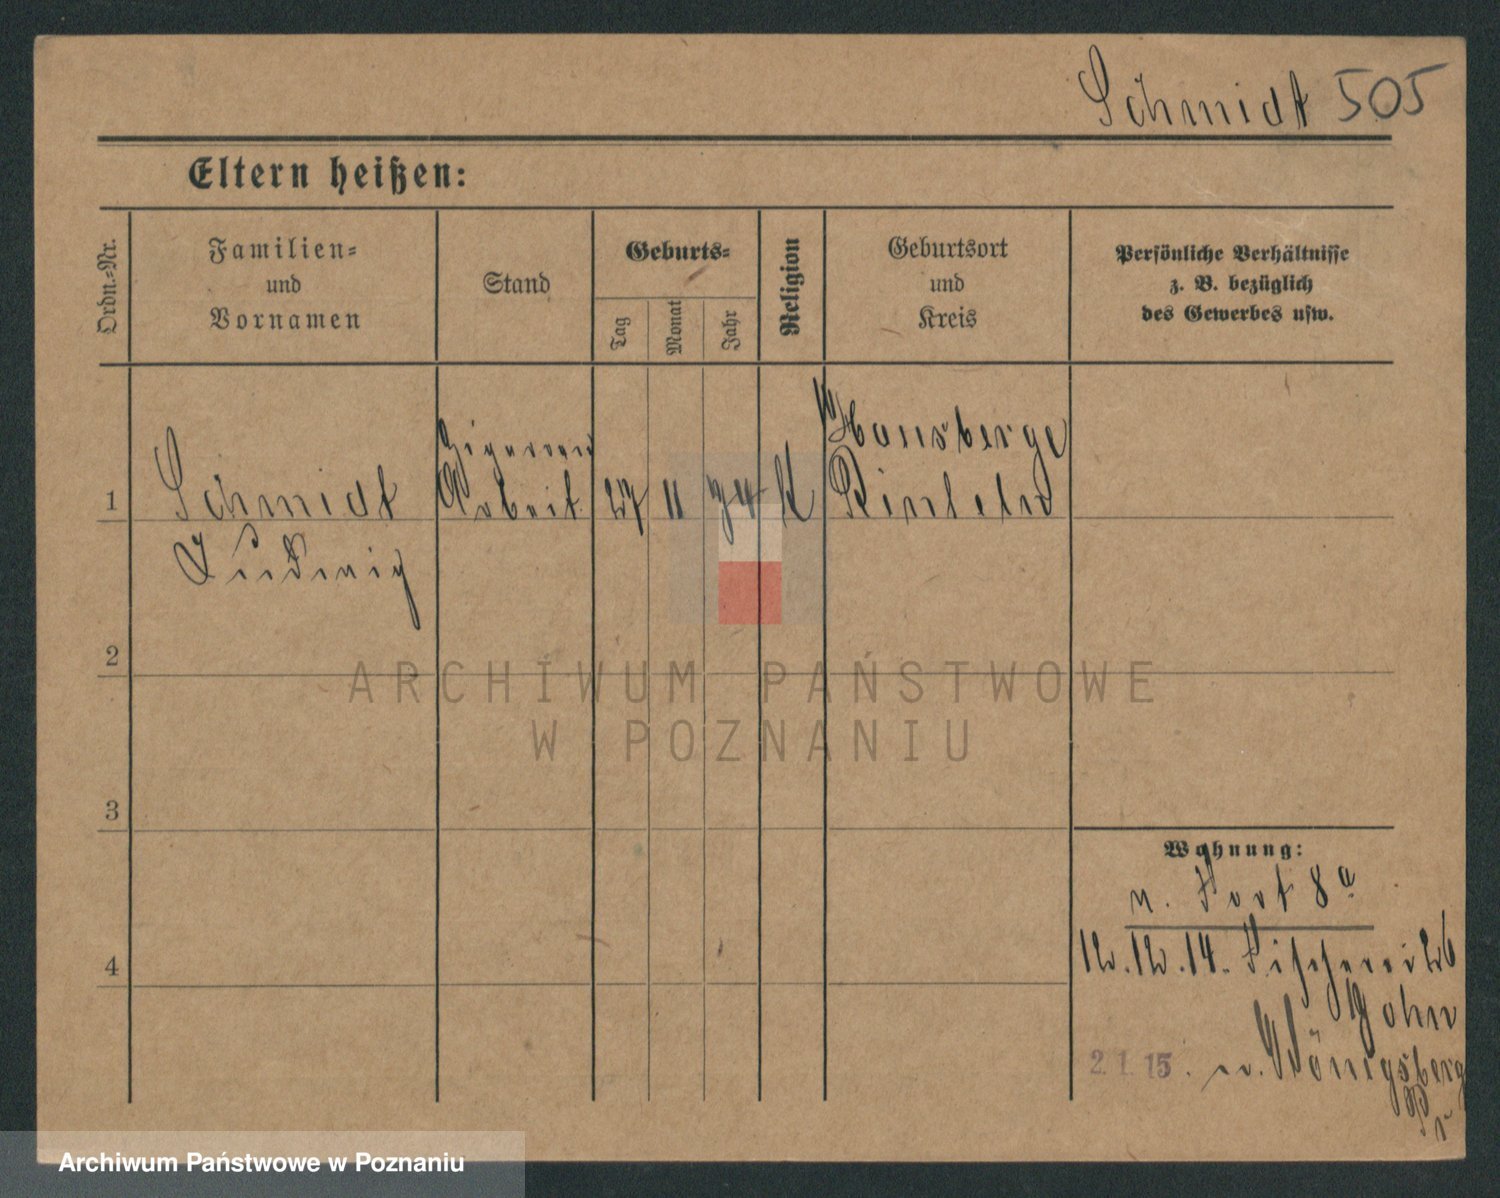 Schmidt 505
Eltern heißen:
Ordn.-Nr.
Familien-
und
Vornamen
Stand
Geburts-
Tag
Monat
Jahr
Religion
Geburtsort
und
Kreis
Persönliche Verhältnisse
z. B. bezüglich
des Gewerbes usw.
1
Schmidt
Ludwig
Zigarren
Arbeit.
27
11
74
K
Hausberge
Rinteln
2
3
4
Wohnung:
n. 8a
12.12.14. Fischerei 26
John
2.1.15. n. Königsberg
Pr
ARCHIWUM PAŃSTWOWE
W POZNANIU
Archiwum Państwowe w Poznaniu